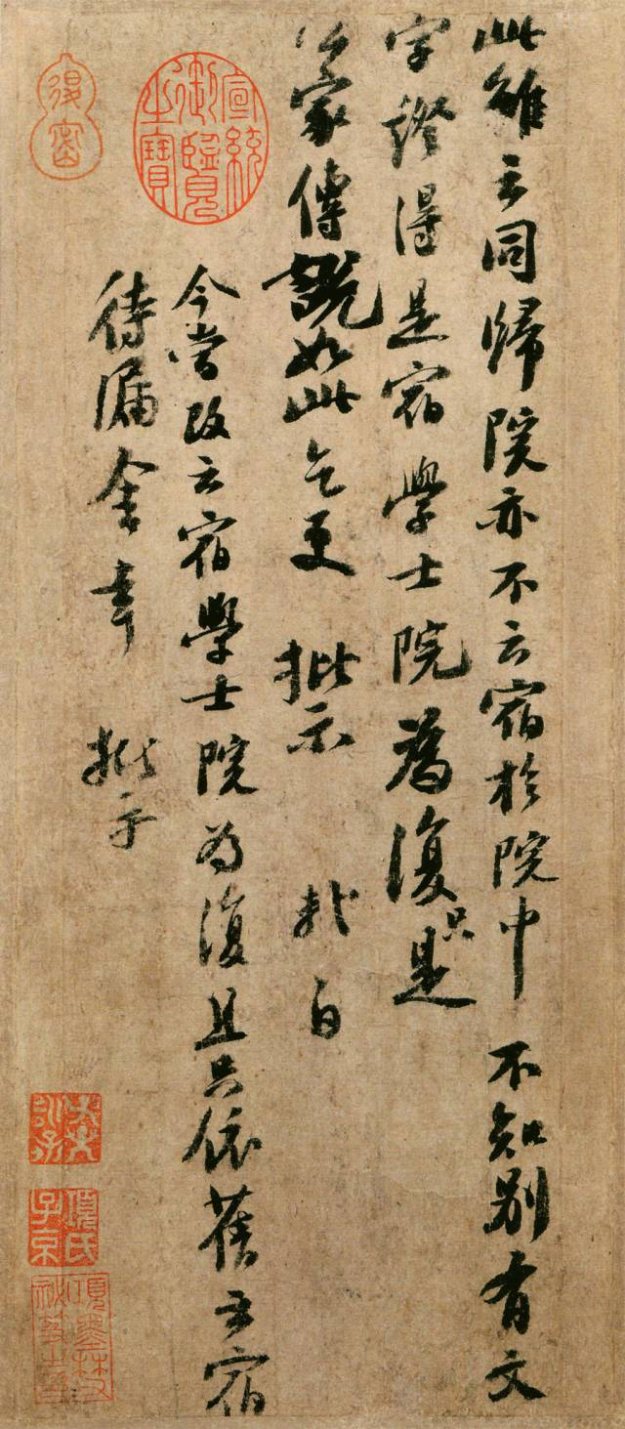 此雖云同歸院亦不云宿於院中 不知別有文
字證得是宿學士院為復只是
公家傳說如此乞更 批示 軾白
今嘗改云宿學士院為復且只依舊云宿
待漏舍幸 批示
宣統御覽之寶
項氏子京
項墨林